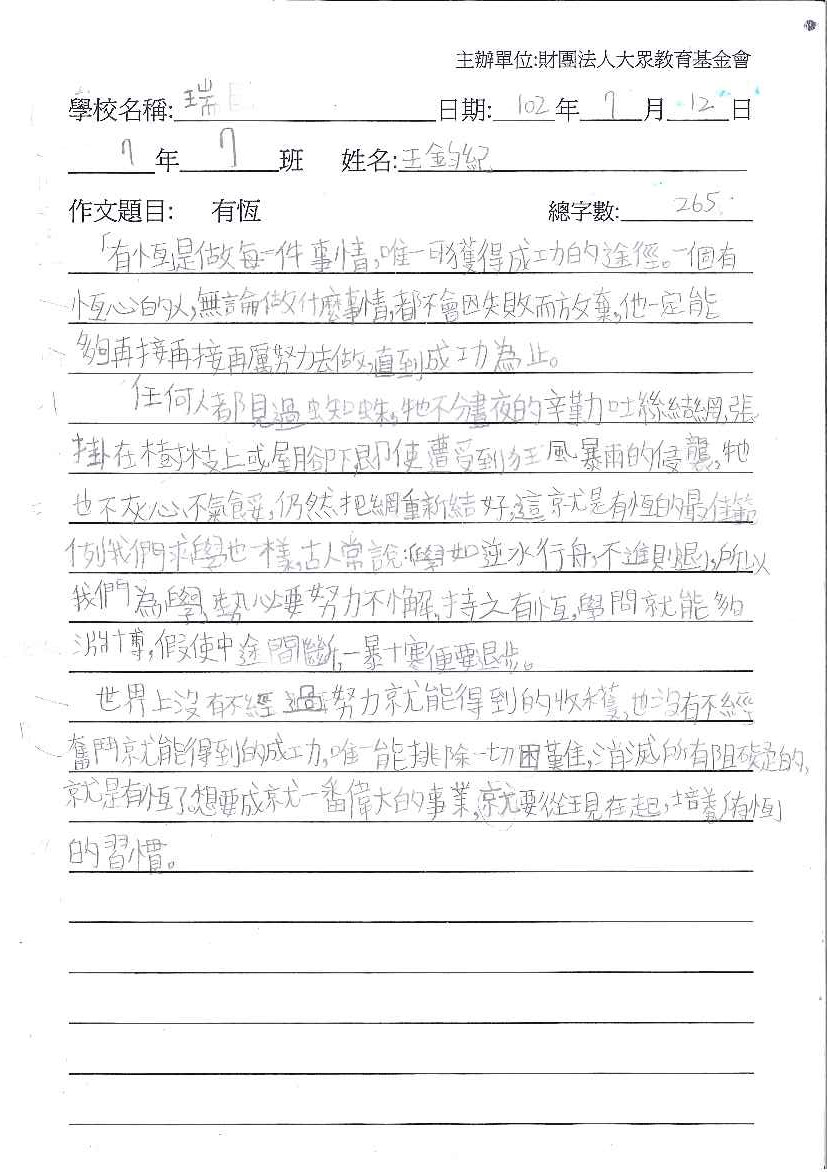 主辦單位:財團法人大眾教育基金會
學校名稱:瑞 日期:102年7月12日
7年7班 姓名:王鈞紀
作文題目: 有恆 總字數:265
「有恆是做每一件事情,唯一可獲得成功的途徑。一個有
恆心的人,無論做什麼事情,都不會因失敗而放棄,他一定能
夠再接再接再厲努力去做,直到成功為止。
任何人都見過蜘蛛,牠不分晝夜的辛勤吐絲結網,張
掛在樹枝上或屋腳下,即使遭受到狂風暴雨的侵襲,牠
也不灰心、不氣餒,仍然把網重新結好,這就是有恆的最佳範
例我們求學也一樣,古人常說:「學如逆水行舟,不進則退」,所以
我們為學,勢必要努力不懈,持之有恆,學問就能夠
淵博,假使中途間斷,一暴十寒便要退步。
世界上沒有不經過努力就能得到的收穫,也沒有不經
奮鬥就能得到的成功,唯一能排除一切困難,消滅所有阻礙的,
就是有恆了想要成就一番偉大的事業,就要從現在起,培養有恆
的習慣。